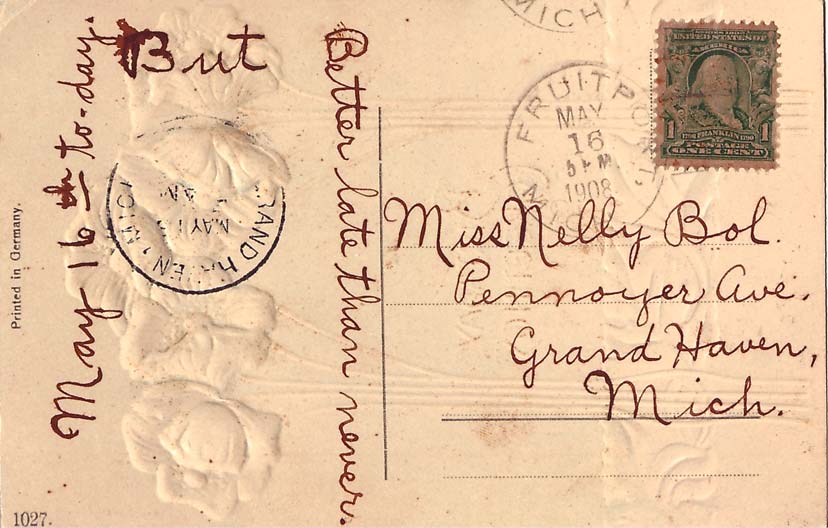 May 16th to-day.
But
Better late than never.
Printed in Germany.
1027.
GRAND HAVEN MICH
MAY 1
AM
MICH
FRUITPORT,
MAY
16
5 PM
1908
MICH
SERIES 1902
UNITED STATES OF
AMERICA
1 1706 FRANKLIN 1790 1
POSTAGE
ONE CENT
Miss Nelly Bol.
Pennoyer Ave.
Grand Haven,
Mich.